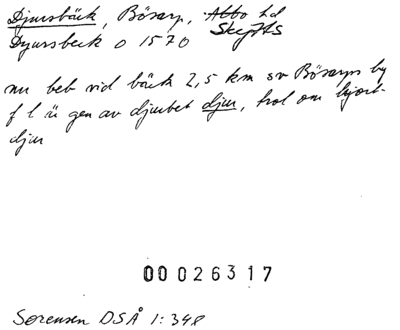 Djursbäck, Bösarp, Albo hd
Skytts
Dyursbeck o 1570
nu beb vid bäck 2,5 km sv Bösarps by
f l ä gen av djurbet djur, trol om hjort-
djur
00 026317
Sørensen DSÅ 1:348